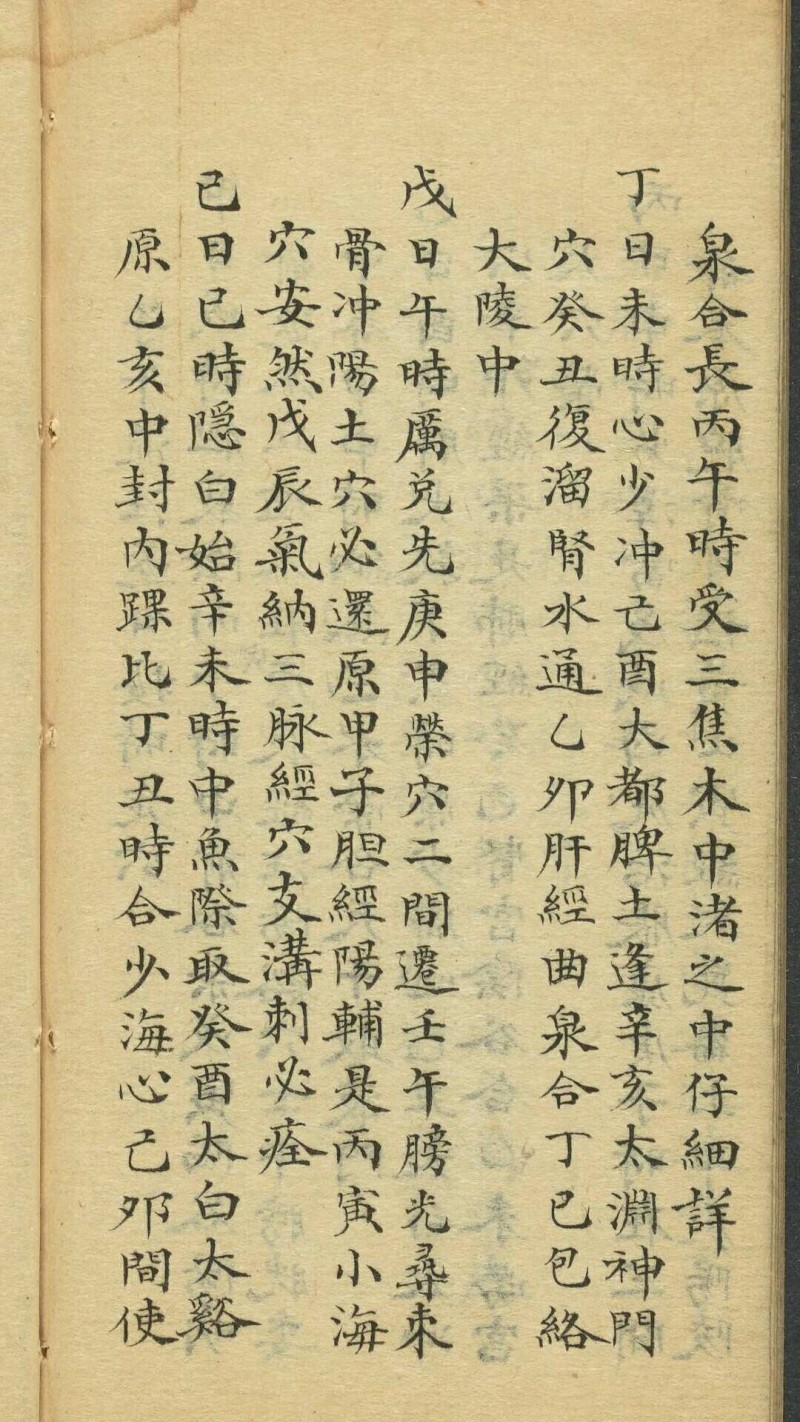 泉合長丙午時受三焦木中渚之中仔細詳
丁日未時心少冲己酉大都脾土逢辛亥太淵神門
穴癸丑復溜腎水通乙夘肝經曲泉合丁巳包絡
大陵中
戊日午時厲兑先庚申榮穴二間遷壬午膀光尋束
骨冲陽土穴必還原甲子胆經陽輔是丙寅小海
穴安然戊辰氣納三脉經穴支溝刺必痊
己日巳時隱白始辛未時中魚際取癸酉太白太谿
原乙亥中封内踝比丁丑時合少海心己夘間使